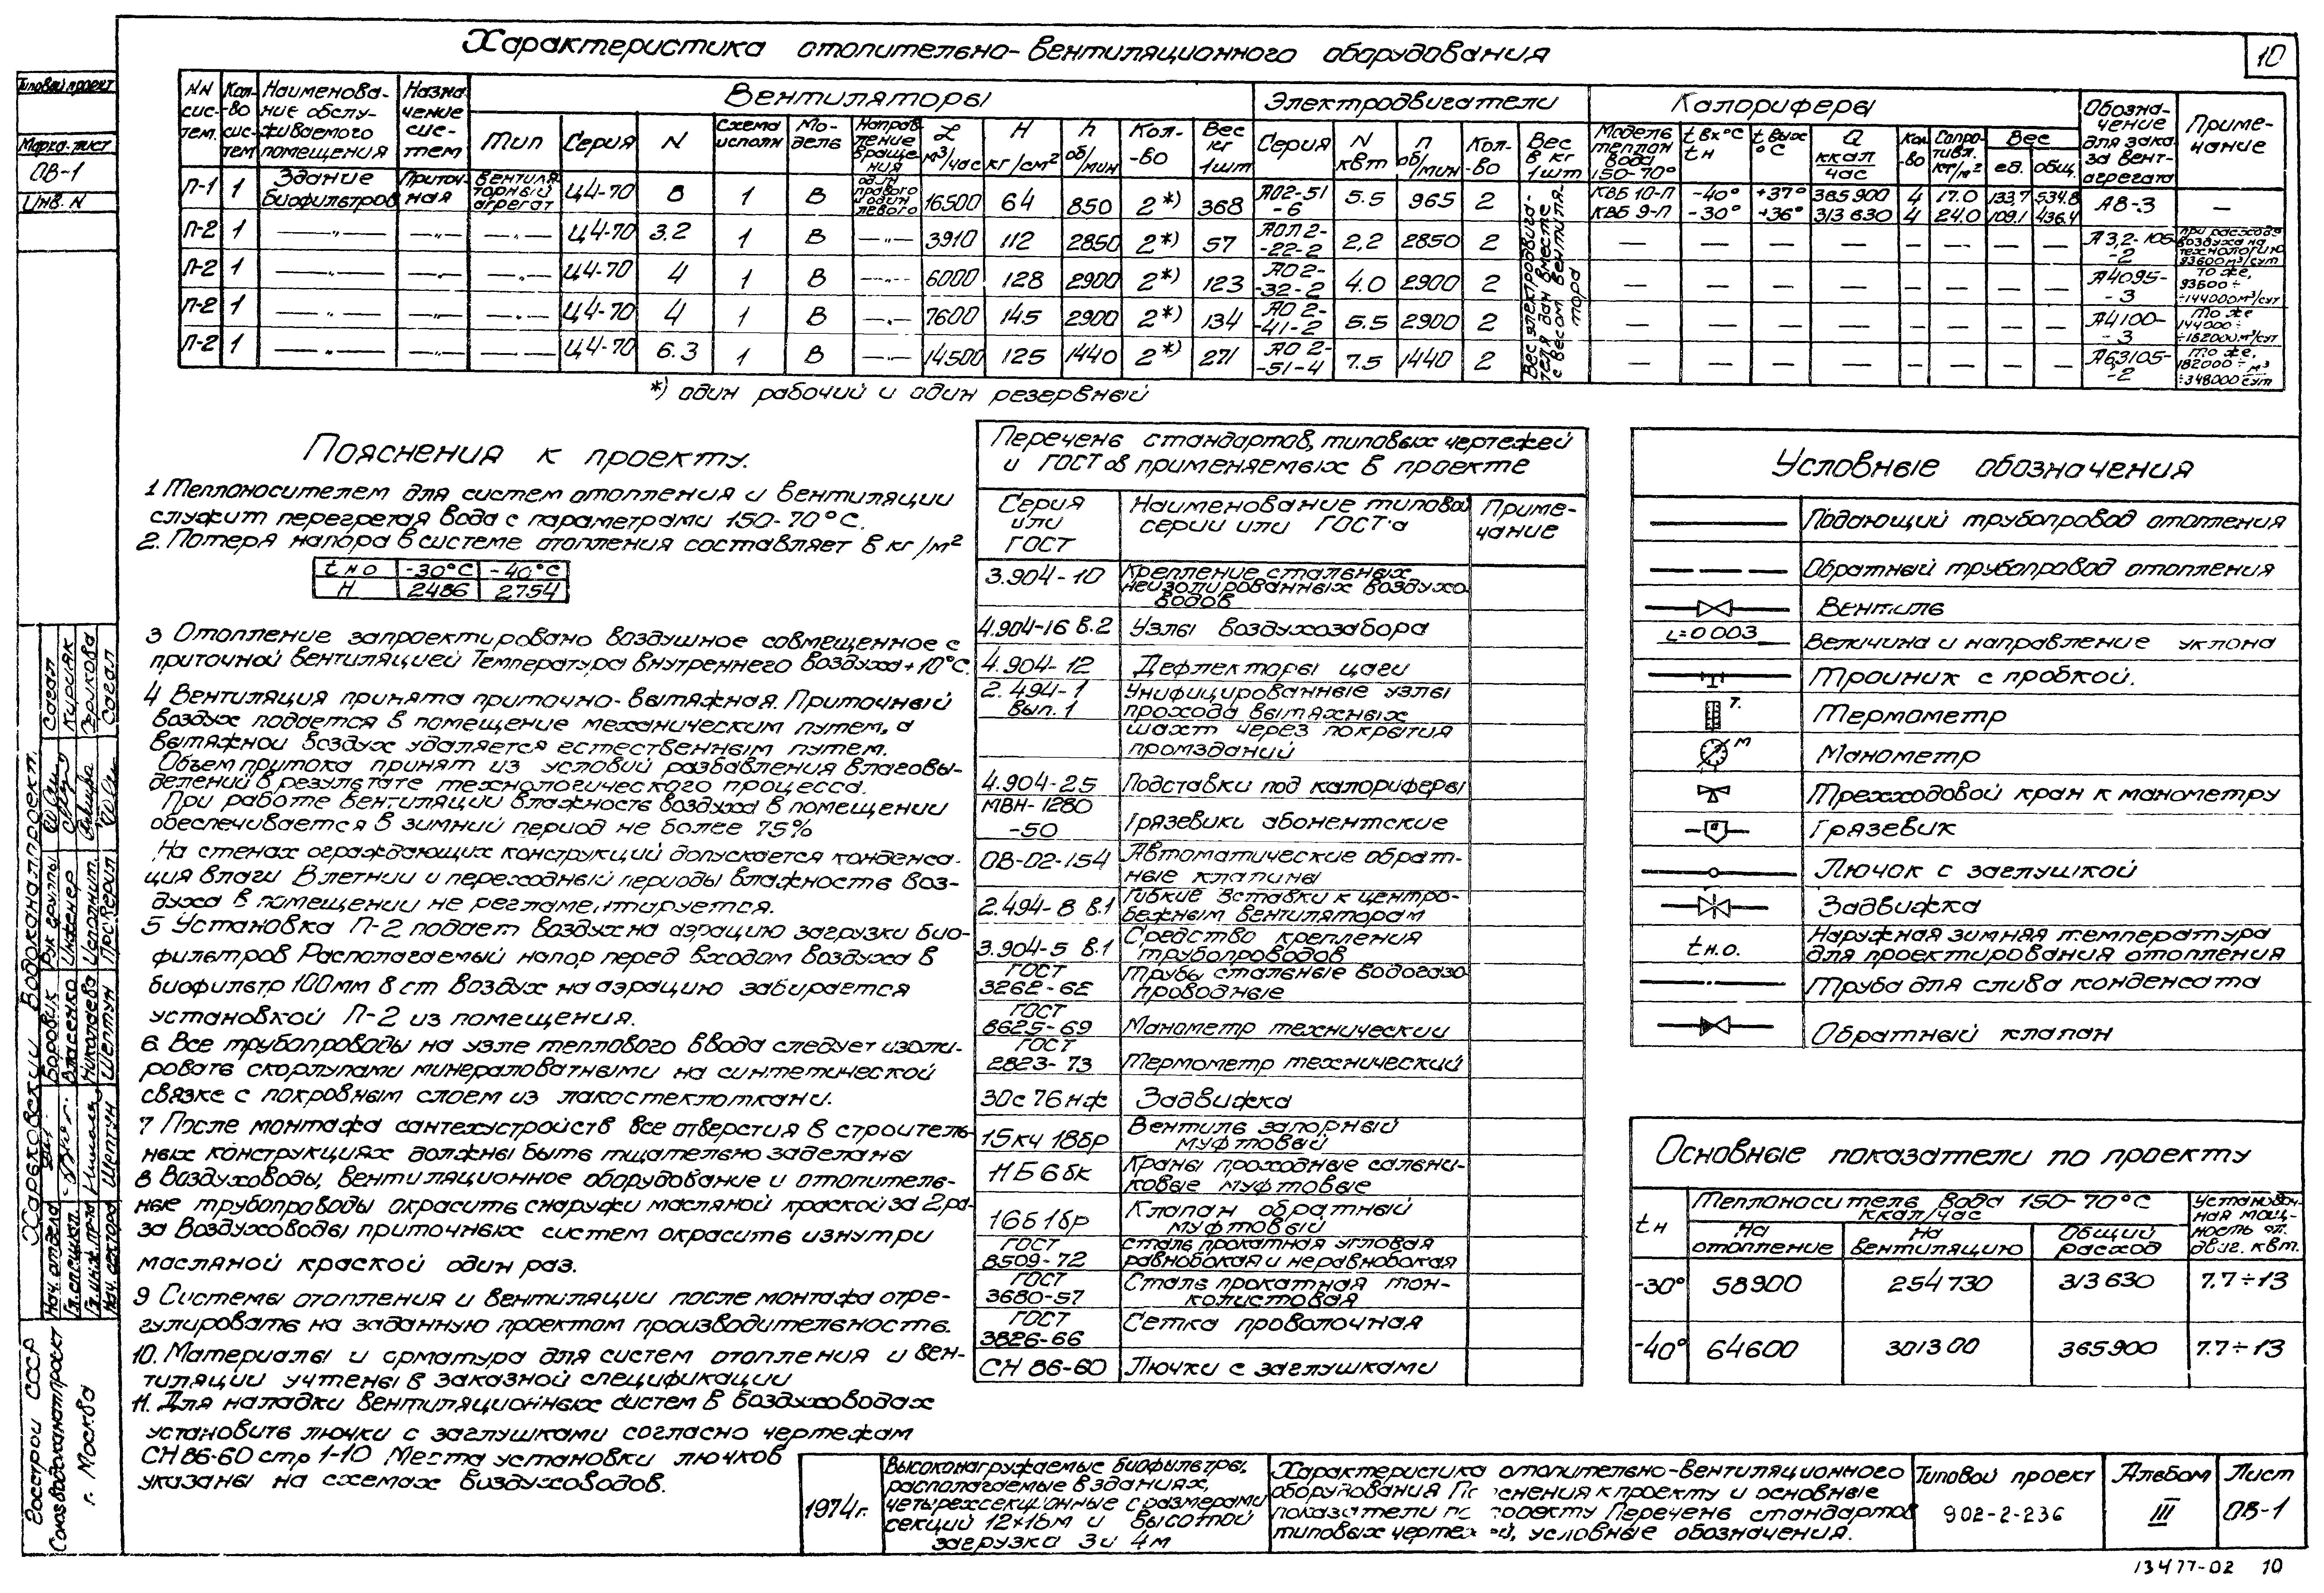 Характеристика отопительно-вентиляционного оборудования
10
Типовой проект
Марка-лист
ОВ-1
Инв. N
NN систем. | Кол-во систем | Наименование обслуживаемого помещения | Назначение систем | Вентиляторы | Электродвигатели | Калориферы | Обозначение для заказа вентагрегата | Примечание
Тип | Серия | N | Схема исполн | Модель | Направление вращения | L м³/час | H кг/см² | h об/мин | Кол-во | Вес кг 1шт | Серия | N квт | n об/мин | Кол-во | Вес в кг 1шт | Модель теплон вода 150-70° | t вх°С tн | t вых °С | Q ккал/час | Кол-во | Сопротивл. кг/м² | Вес ед. | общ.
П-1 | 1 | Здание биофильтров | Приточная | Вентиляторный агрегат | Ц4-70 | 8 | 1 | В | один правого и один левого | 16500 | 64 | 850 | 2*) | 368 | АО2-51-6 | 5.5 | 965 | 2 | Вес электродвигателя дан вместе с весом вентилятора | КВБ 10-П | -40° | +37° | 365900 | 4 | 17.0 | 133,7 | 534.8 | А8-3 | —
КВБ 9-П | -30° | +36° | 313630 | 4 | 24.0 | 109.1 | 436.4
П-2 | 1 | —"— | —"— | —"— | Ц4-70 | 3.2 | 1 | В | —"— | 3910 | 112 | 2850 | 2*) | 57 | АОЛ2-22-2 | 2,2 | 2850 | 2 | — | — | — | — | — | — | — | — | А3,2-105-2 | при расходе воздуха на технологию 93600м³/сут
П-2 | 1 | —"— | —"— | —"— | Ц4-70 | 4 | 1 | В | —"— | 6000 | 128 | 2900 | 2*) | 123 | АО2-32-2 | 4.0 | 2900 | 2 | — | — | — | — | — | — | — | — | А4095-3 | то же, 93600÷÷144000м³/сут
П-2 | 1 | —"— | —"— | —"— | Ц4-70 | 4 | 1 | В | —"— | 7600 | 145 | 2900 | 2*) | 134 | АО2-41-2 | 5.5 | 2900 | 2 | — | — | — | — | — | — | — | — | А4100-3 | то же 144000÷÷182000м³/сут
П-2 | 1 | —"— | —"— | —"— | Ц4-70 | 6.3 | 1 | В | —"— | 14500 | 125 | 1440 | 2*) | 271 | АО2-51-4 | 7.5 | 1440 | 2 | — | — | — | — | — | — | — | — | А63105-2 | то же, 182000÷÷348000 м³/сут
*) один рабочий и один резервный
Пояснения к проекту.
1 Теплоносителем для систем отопления и вентиляции
служит перегретая вода с параметрами 150-70°С.
2. Потеря напора в системе отопления составляет в кг/м²
tно | -30°С | -40°С
H | 2486 | 2754
3 Отопление запроектировано воздушное совмещенное с
приточной вентиляцией Температура внутреннего воздуха +10°С.
4 Вентиляция принята приточно-вытяжная. Приточный
воздух подается в помещение механическим путем, а
вытяжной воздух удаляется естественным путем.
Объем притока принят из условий разбавления влаговы-
делений в результате технологического процесса.
При работе вентиляции влажность воздуха в помещении
обеспечивается в зимний период не более 75%
На стенах ограждающих конструкций допускается конденса-
ция влаги В летний и переходный периоды влажность воз-
духа в помещении не регламентируется.
5 Установка П-2 подает воздух на аэрацию загрузки био-
фильтров Располагаемый напор перед входом воздуха в
биофильтр 100мм в ст Воздух на аэрацию забирается
установкой П-2 из помещения.
6. Все трубопроводы на узле теплового ввода следует изоли-
ровать скорлупами минераловатными на синтетической
связке с покровным слоем из лакостеклоткани.
7 После монтажа сантехустройств все отверстия в строитель-
ных конструкциях должны быть тщательно заделаны
8 Воздуховоды, вентиляционное оборудование и отопитель-
ные трубопроводы окрасить снаружи масляной краской за 2 ра-
за Воздуховоды приточных систем окрасить изнутри
масляной краской один раз.
9 Системы отопления и вентиляции после монтажа отре-
гулировать на заданную проектом производительность.
10. Материалы и арматура для систем отопления и вен-
тиляции учтены в заказной спецификации
11. Для наладки вентиляционных систем в воздуховодах
установить лючки с заглушками согласно чертежам
СН 86-60 стр 1-10 Места установки лючков
указаны на схемах воздуховодов.
Перечень стандартов, типовых чертежей
и ГОСТов применяемых в проекте
Серия или ГОСТ | Наименование типовой серии или ГОСТ'а | Примечание
3.904-10 | Крепление стальных неизолированных воздуховодов
4.904-16 в.2 | Узлы воздухозабора
4.904-12 | Дефлекторы цаги
2.494-1 вып. 1 | Унифицированные узлы прохода вытяжных шахт через покрытия промзданий
4.904-25 | Подставки под калориферы
МВН-1280-50 | Грязевики абонентские
ОВ-02-154 | Автоматические обратные клапаны
2.494-8 в.1 | Гибкие вставки к центробежным вентиляторам
3.904-5 в.1 | Средство крепления трубопроводов
ГОСТ 3262-62 | Трубы стальные водогазопроводные
ГОСТ 8625-69 | Манометр технический
ГОСТ 2823-73 | Термометр технический
30с 76 нж | Задвижка
15кч 18бр | Вентиль запорный муфтовый
11Б6бк | Краны проходные сальниковые муфтовые
16б1бр | Клапан обратный муфтовый
ГОСТ 8509-72 | Сталь прокатная угловая равнобокая и неравнобокая
ГОСТ 3680-57 | Сталь прокатная тонколистовая
ГОСТ 3826-66 | Сетка проволочная
СН 86-60 | Лючки с заглушками
Условные обозначения
Подающий трубопровод отопления
Обратный трубопровод отопления
Вентиль
i=0 003 Величина и направление уклона
Тройник с пробкой.
Т. Термометр
М Манометр
Трехходовой кран к манометру
Грязевик
Лючок с заглушкой
Задвижка
tн.о. Наружная зимняя температура
для проектирования отопления
Труба для слива конденсата
Обратный клапан
Основные показатели по проекту
tн | Теплоноситель вода 150-70°С ккал/час | Установочная мощность эл. двиг. квт.
На отопление | На вентиляцию | Общий расход
-30° | 58900 | 254730 | 313630 | 7.7÷13
-40° | 64600 | 301300 | 365900 | 7.7÷13
Харьковский Водоканалпроект.
Нач. отдела Боровик Рук группы Сагал
Гл. специал. Власенко Инженер Куприяк
Гл. инж. пр-та Николаева Исполнит. Серикова
Нач. сектора Шептун Шептун Проверил Сагал
Госстрой СССР
Союзводоканалпроект
г. Москва
1974г.
Высоконагружаемые биофильтры,
располагаемые в зданиях,
четырехсекционные с размерами
секций 12×18м и высотой
загрузка 3 и 4м
Характеристика отопительно-вентиляционного
оборудования Пояснения к проекту и основные
показатели по проекту Перечень стандартов
типовых чертежей, условные обозначения.
Типовой проект
902-2-236
Альбом
III
Лист
ОВ-1
13477-02 10